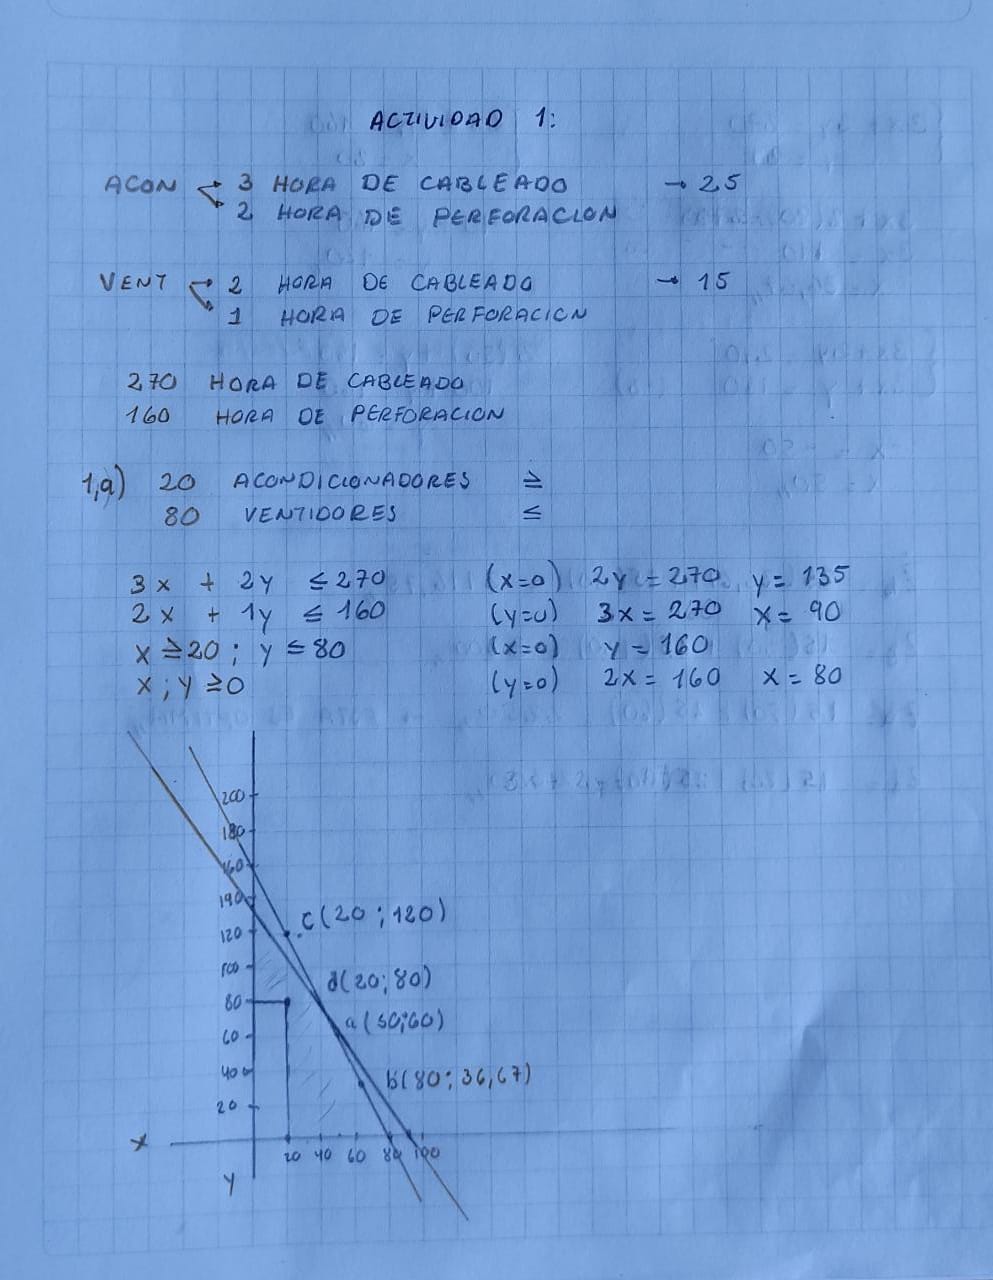 ACTIVIDAD 1:
ACON → 3 HORA DE CABLEADO → 25
→ 2 HORA DE PERFORACION
VENT → 2 HORA DE CABLEADO → 15
→ 1 HORA DE PERFORACION
270 HORA DE CABLEADO
160 HORA DE PERFORACION
1,a) 20 ACONDICIONADORES ≥
80 VENTIDORES ≤
3x + 2y ≤ 270 (x=0) 2y = 270 y = 135
2x + 1y ≤ 160 (y=0) 3x = 270 x = 90
x ≥ 20 ; y ≤ 80 (x=0) y = 160
x ; y ≥ 0 (y=0) 2x = 160 x = 80
200
180
160
190
120
100
80
60
40
20
c(20 ; 120)
d(20; 80)
a(50;60)
b(80; 36,67)
X
20 40 60 80 100
Y